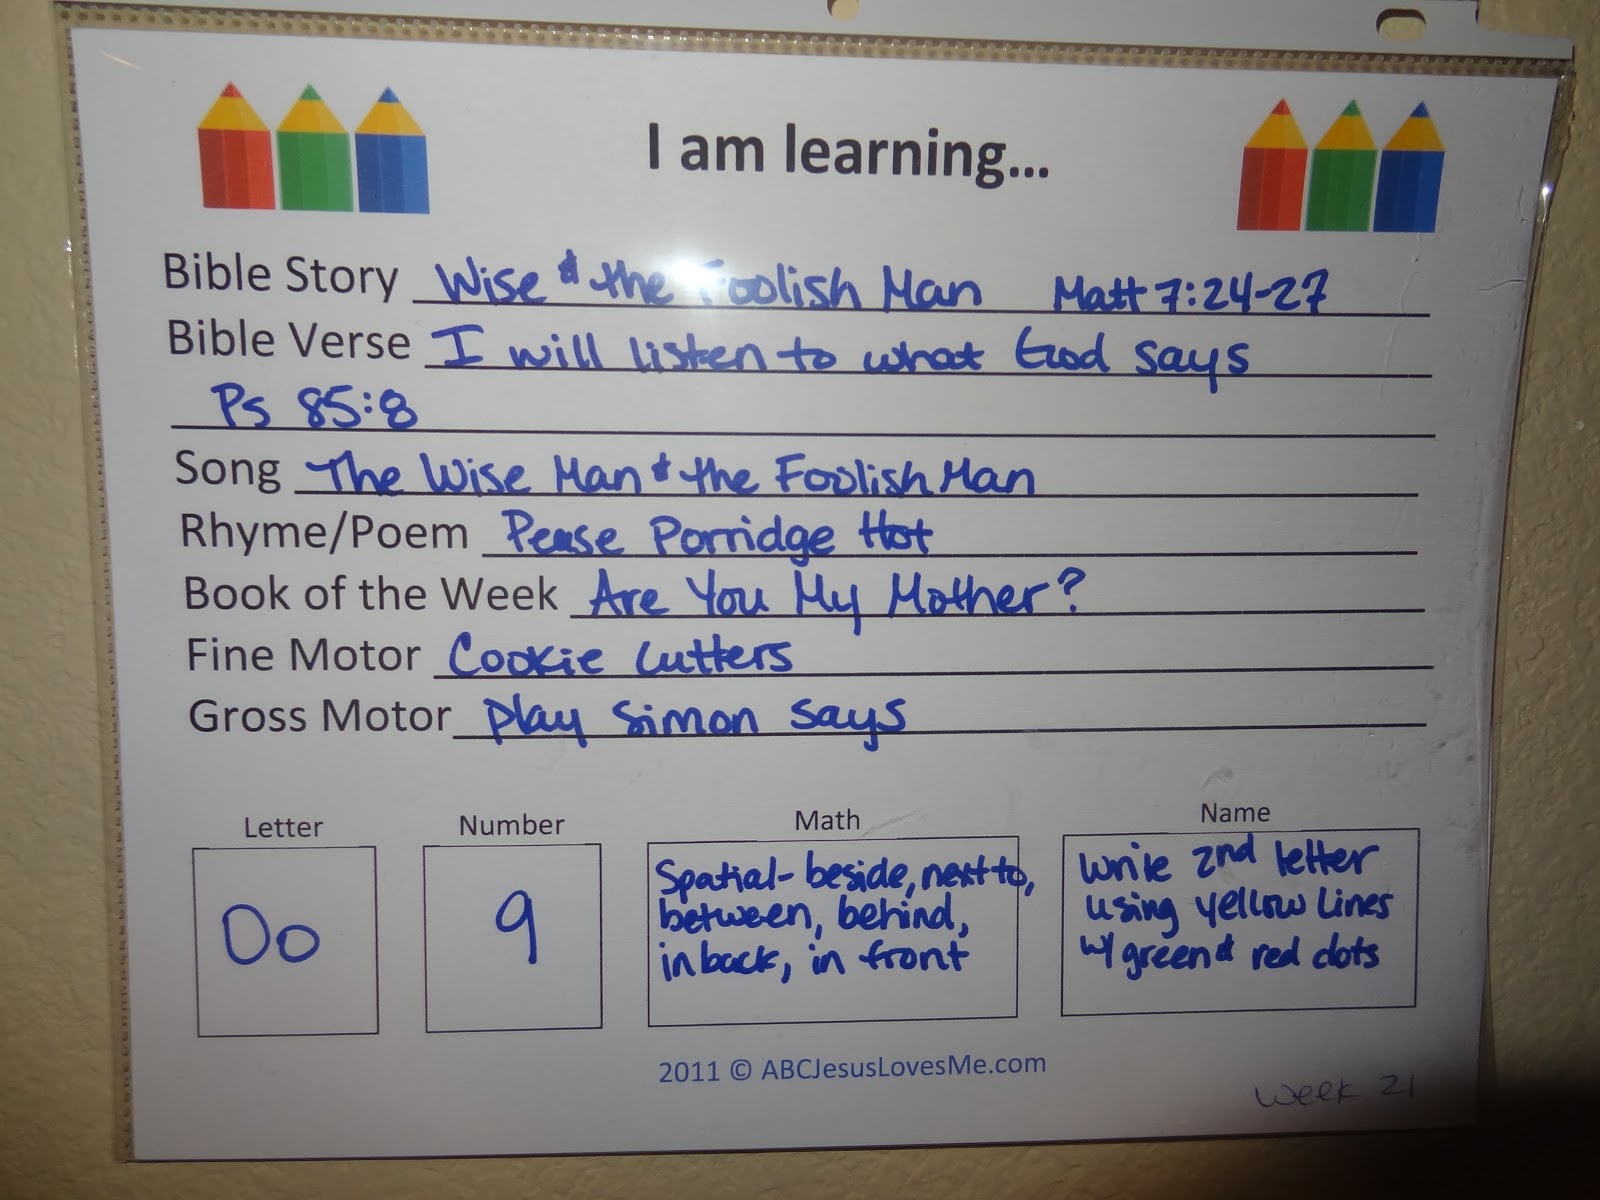 I am learning...
Bible Story Wise & the Foolish Man Matt 7:24-27
Bible Verse I will listen to what God says
Ps 85:8
Song The Wise Man & the Foolish Man
Rhyme/Poem Pease Porridge Hot
Book of the Week Are You My Mother?
Fine Motor Cookie Cutters
Gross Motor Play Simon Says
Letter Number Math Name
Oo
9
Spatial- beside, next to,
between, behind,
in back, in front
Write 2nd letter
using yellow lines
w/ green & red dots
2011 © ABCJesusLovesMe.com
Week 21